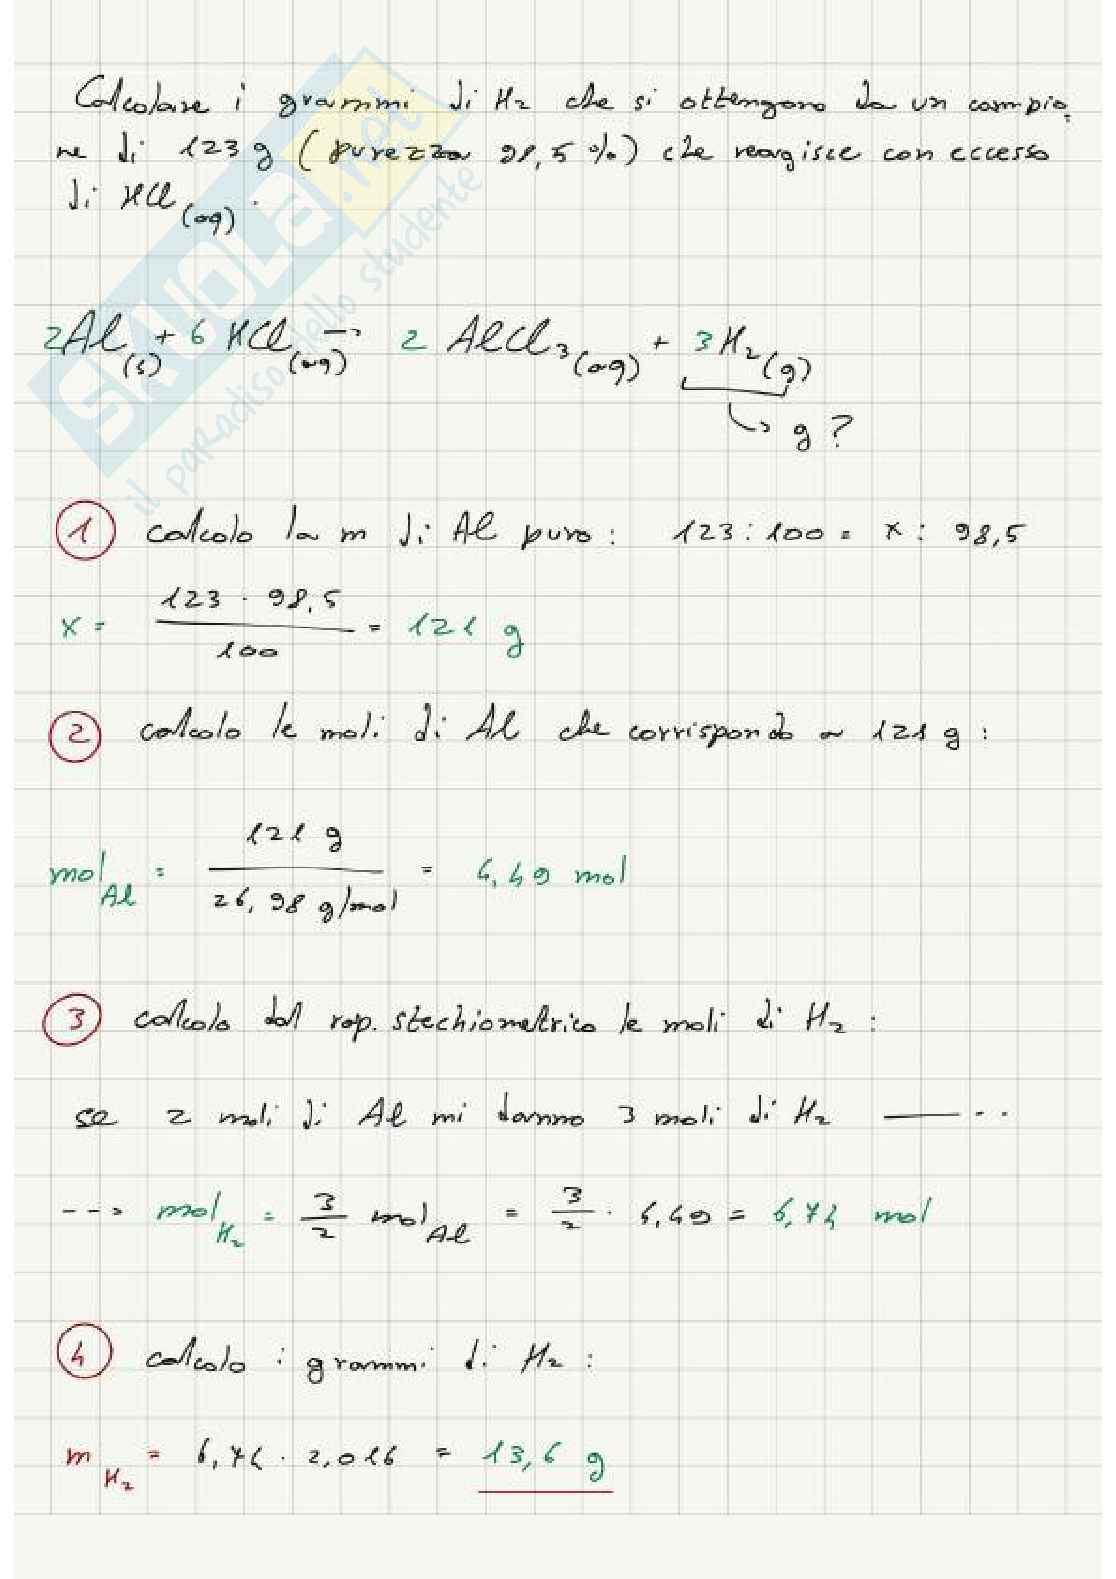 Calcolare i grammi di H₂ che si ottengono da un campio-
ne di 123 g (purezza 98,5 %) che reagisce con eccesso
di HCl (aq).
SKUOLA.net
il paradiso dello studente
2Al(s) + 6 HCl(aq) → 2 AlCl₃(aq) + 3H₂(g)
↳ g ?
1 calcolo la m di Al puro: 123 : 100 = x : 98,5
x = 123 · 98,5 / 100 = 121 g
2 calcolo le moli di Al che corrispondo a 121 g :
mol Al = 121 g / 26,98 g/mol = 4,49 mol
3 calcolo dal rap. stechiometrico le moli di H₂ :
se 2 moli di Al mi danno 3 moli di H₂ —--
---> mol H₂ = 3/2 mol Al = 3/2 · 4,49 = 6,74 mol
4 calcolo i grammi di H₂ :
m H₂ = 6,74 · 2,016 = 13,6 g